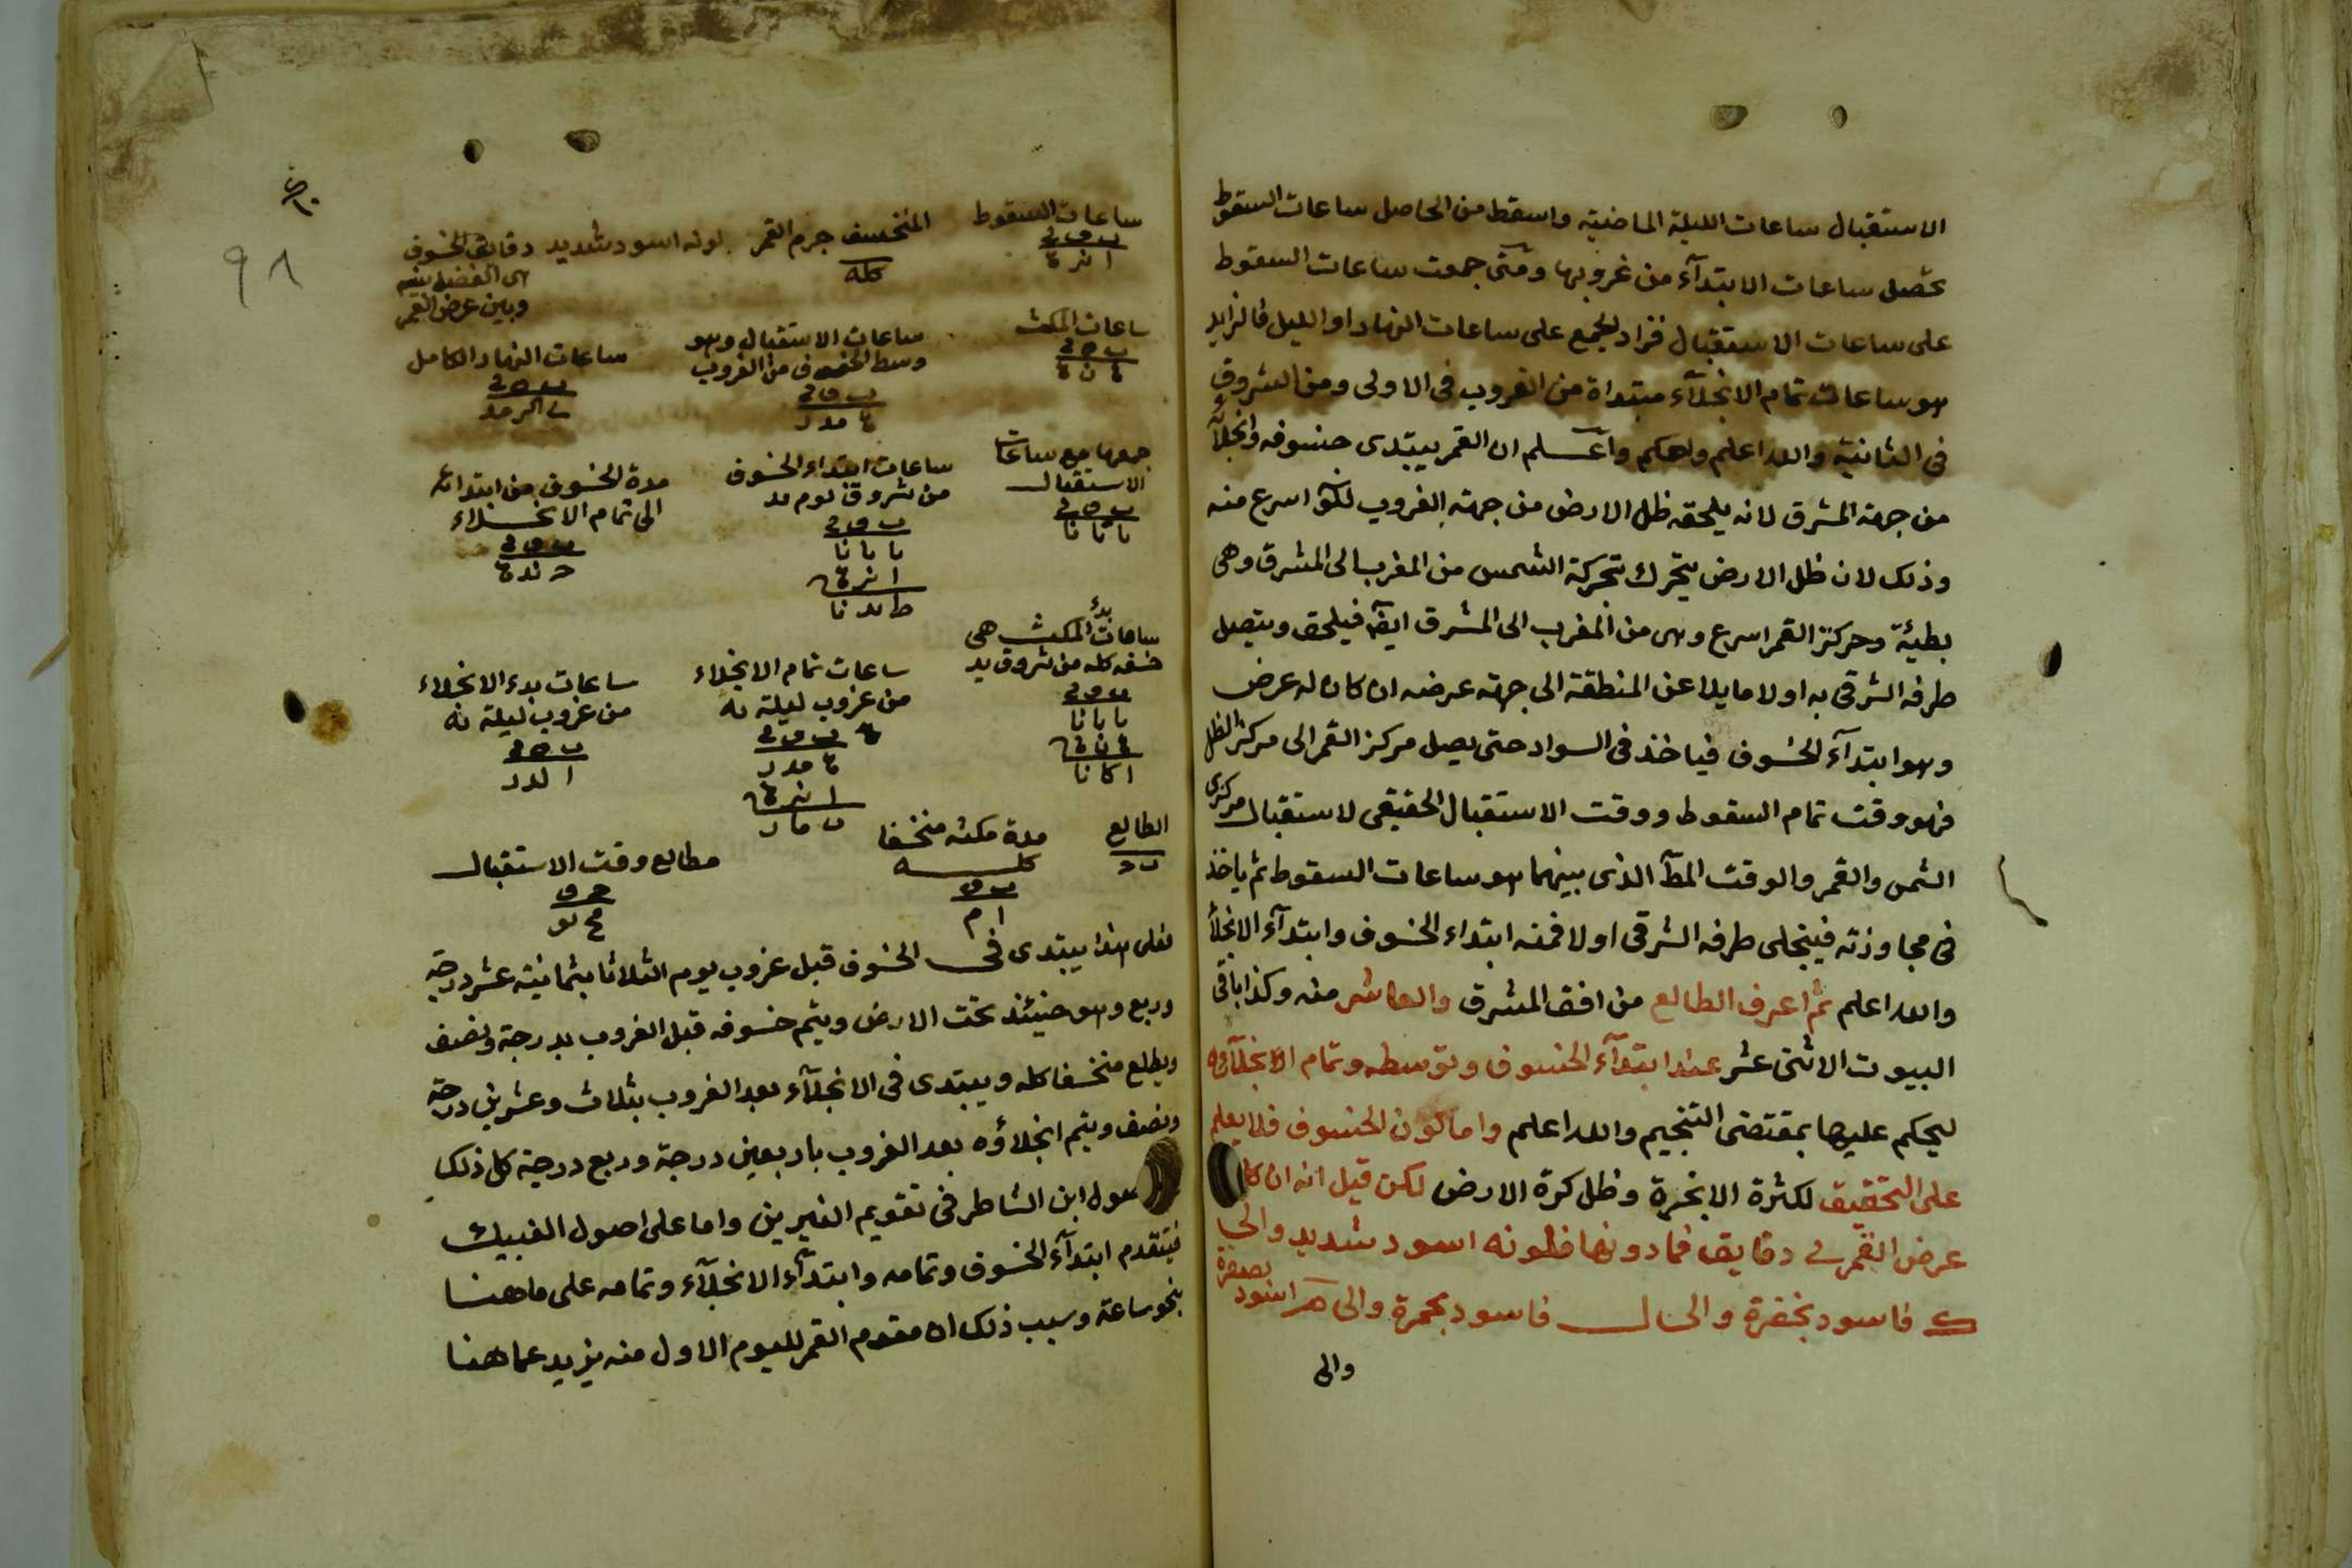 الاستقبال ساعات الليلة الماضية واسقط من الحاصل ساعات السقوط
تحصل ساعات الابتدآء من غروبها ومتى جمعت ساعات السقوط
على ساعات الاستقبال فزاد الجمع على ساعات النهار او الليل فالزايد
هو ساعات تمام الانجلآء مبتداة من الغروب فى الاولى ومن الشروق
فى الثانية والله اعلم واحكم واعـــلم ان القمر يبتدى خسوفه وانجلآؤه
من جهة المشرق لانه يلحقه ظل الارض من جهة الغروب اسرع منه
وذلك لان ظل الارض يتحرك بحركة الشمس من المغرب الى المشرق وهى
بطيئة وحركة القمر اسرع وهى من المغرب الى المشرق ايضا فيلحق ويتصل
طرفه الشرقى به اولا مايلا عن المنطقة الى جهة عرضه ان كان له عرض
وهو ابتدآء الخسوف فياخذ فى السواد حتى يصل مركز القمر الى مركز الظل
فهو وقت تمام السقوط ووقت الاستقبال الحقيقى لاستقبال مركزى
الشمس والقمر والوقت الذى بينهما هو ساعات السقوط ثم ياخذ
فى مجاوزته فينجلى طرفه الشرقى اولا فمنه ابتداء الخسوف وابتدآء الانجلآ
والله اعلم ثم اعرف الطالع من افق المشرق والعاشر منه وكذا باقى
البيوت الاثنى عشر عند ابتدآء الخسوف وتوسطه وتمام الانجلآؤه
ليحكم عليها بمقتضى التنجيم والله اعلم واما لون الخسوف فلا يعلم
على التحقيق لكثرة الابخرة وظل كرة الارض لكن قيل انه ان كا
عرض القمر ى دقايق فما دونها فلونه اسود شديد والى
ك فاسود بخضرة والى ل فاسود بحمرة والى م اسود بصفرة
والى
٩٨
ساعات السقوط
المنخسف جرم القمر
كله
لونه اسود شديد
دقايق الخسوف
هى الفضل بينه
وبين عرض القمر
ساعات المكث
ساعات الاستقبال وهو
وسط الخسوف من الغروب
ساعات النهار الكامل
جمعها مع ساعات
الاستقبال
ساعات ابتداء الخسوف
من شروق يوم
مدة الخسوف من ابتدائه
الى تمام الانجــلاء
ساعات بدء المكث هى
خسفه كله من شروق
ساعات تمام الانجلاء
من غروب ليلة
ساعات بدء الانجلاء
من غروب ليلة
الطالع
مدة مكثه منخسفا
كلـــه
مطالع وقت الاستقبال
فعلى هذا يبتدى فى الخسوف قبل غروب يوم الثلاثا بثمانية عشر درجة
وربع وهو حينئذ تحت الارض ويتم خسوفه قبل الغروب بدرجة ونصف
ويطلع منخسفا كله ويبتدى فى الانجلآء بعد الغروب بثلاث وعشرين درجة
ونصف ويتم انجلاؤه بعد الغروب باربعين درجة وربع درجة كل ذلك
ـصول ابن الشاطر فى تقويم النيرين واما على اصول الغبيك
فيتقدم ابتدآء الخسوف وتمامه وابتدآء الانجلآء وتمامه على ما هنا
بنحو ساعة وسبب ذلك ان مقوم القمر لليوم الاول منه يزيد عما هنا